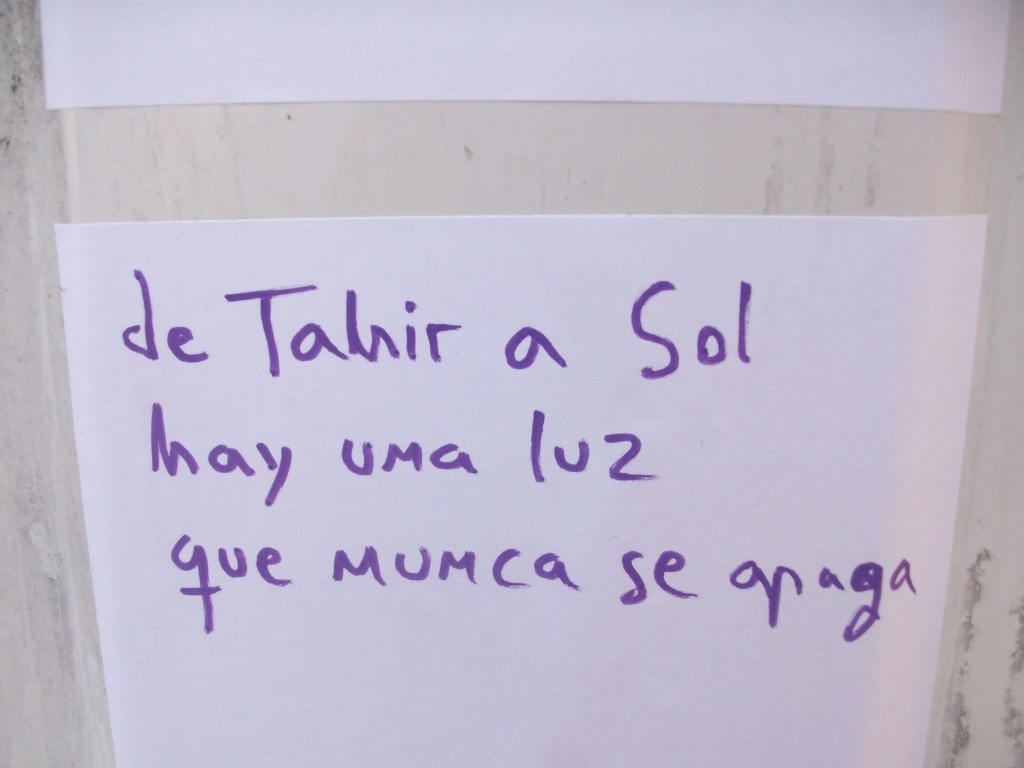 de Tahir a Sol
hay una luz
que nunca se apaga